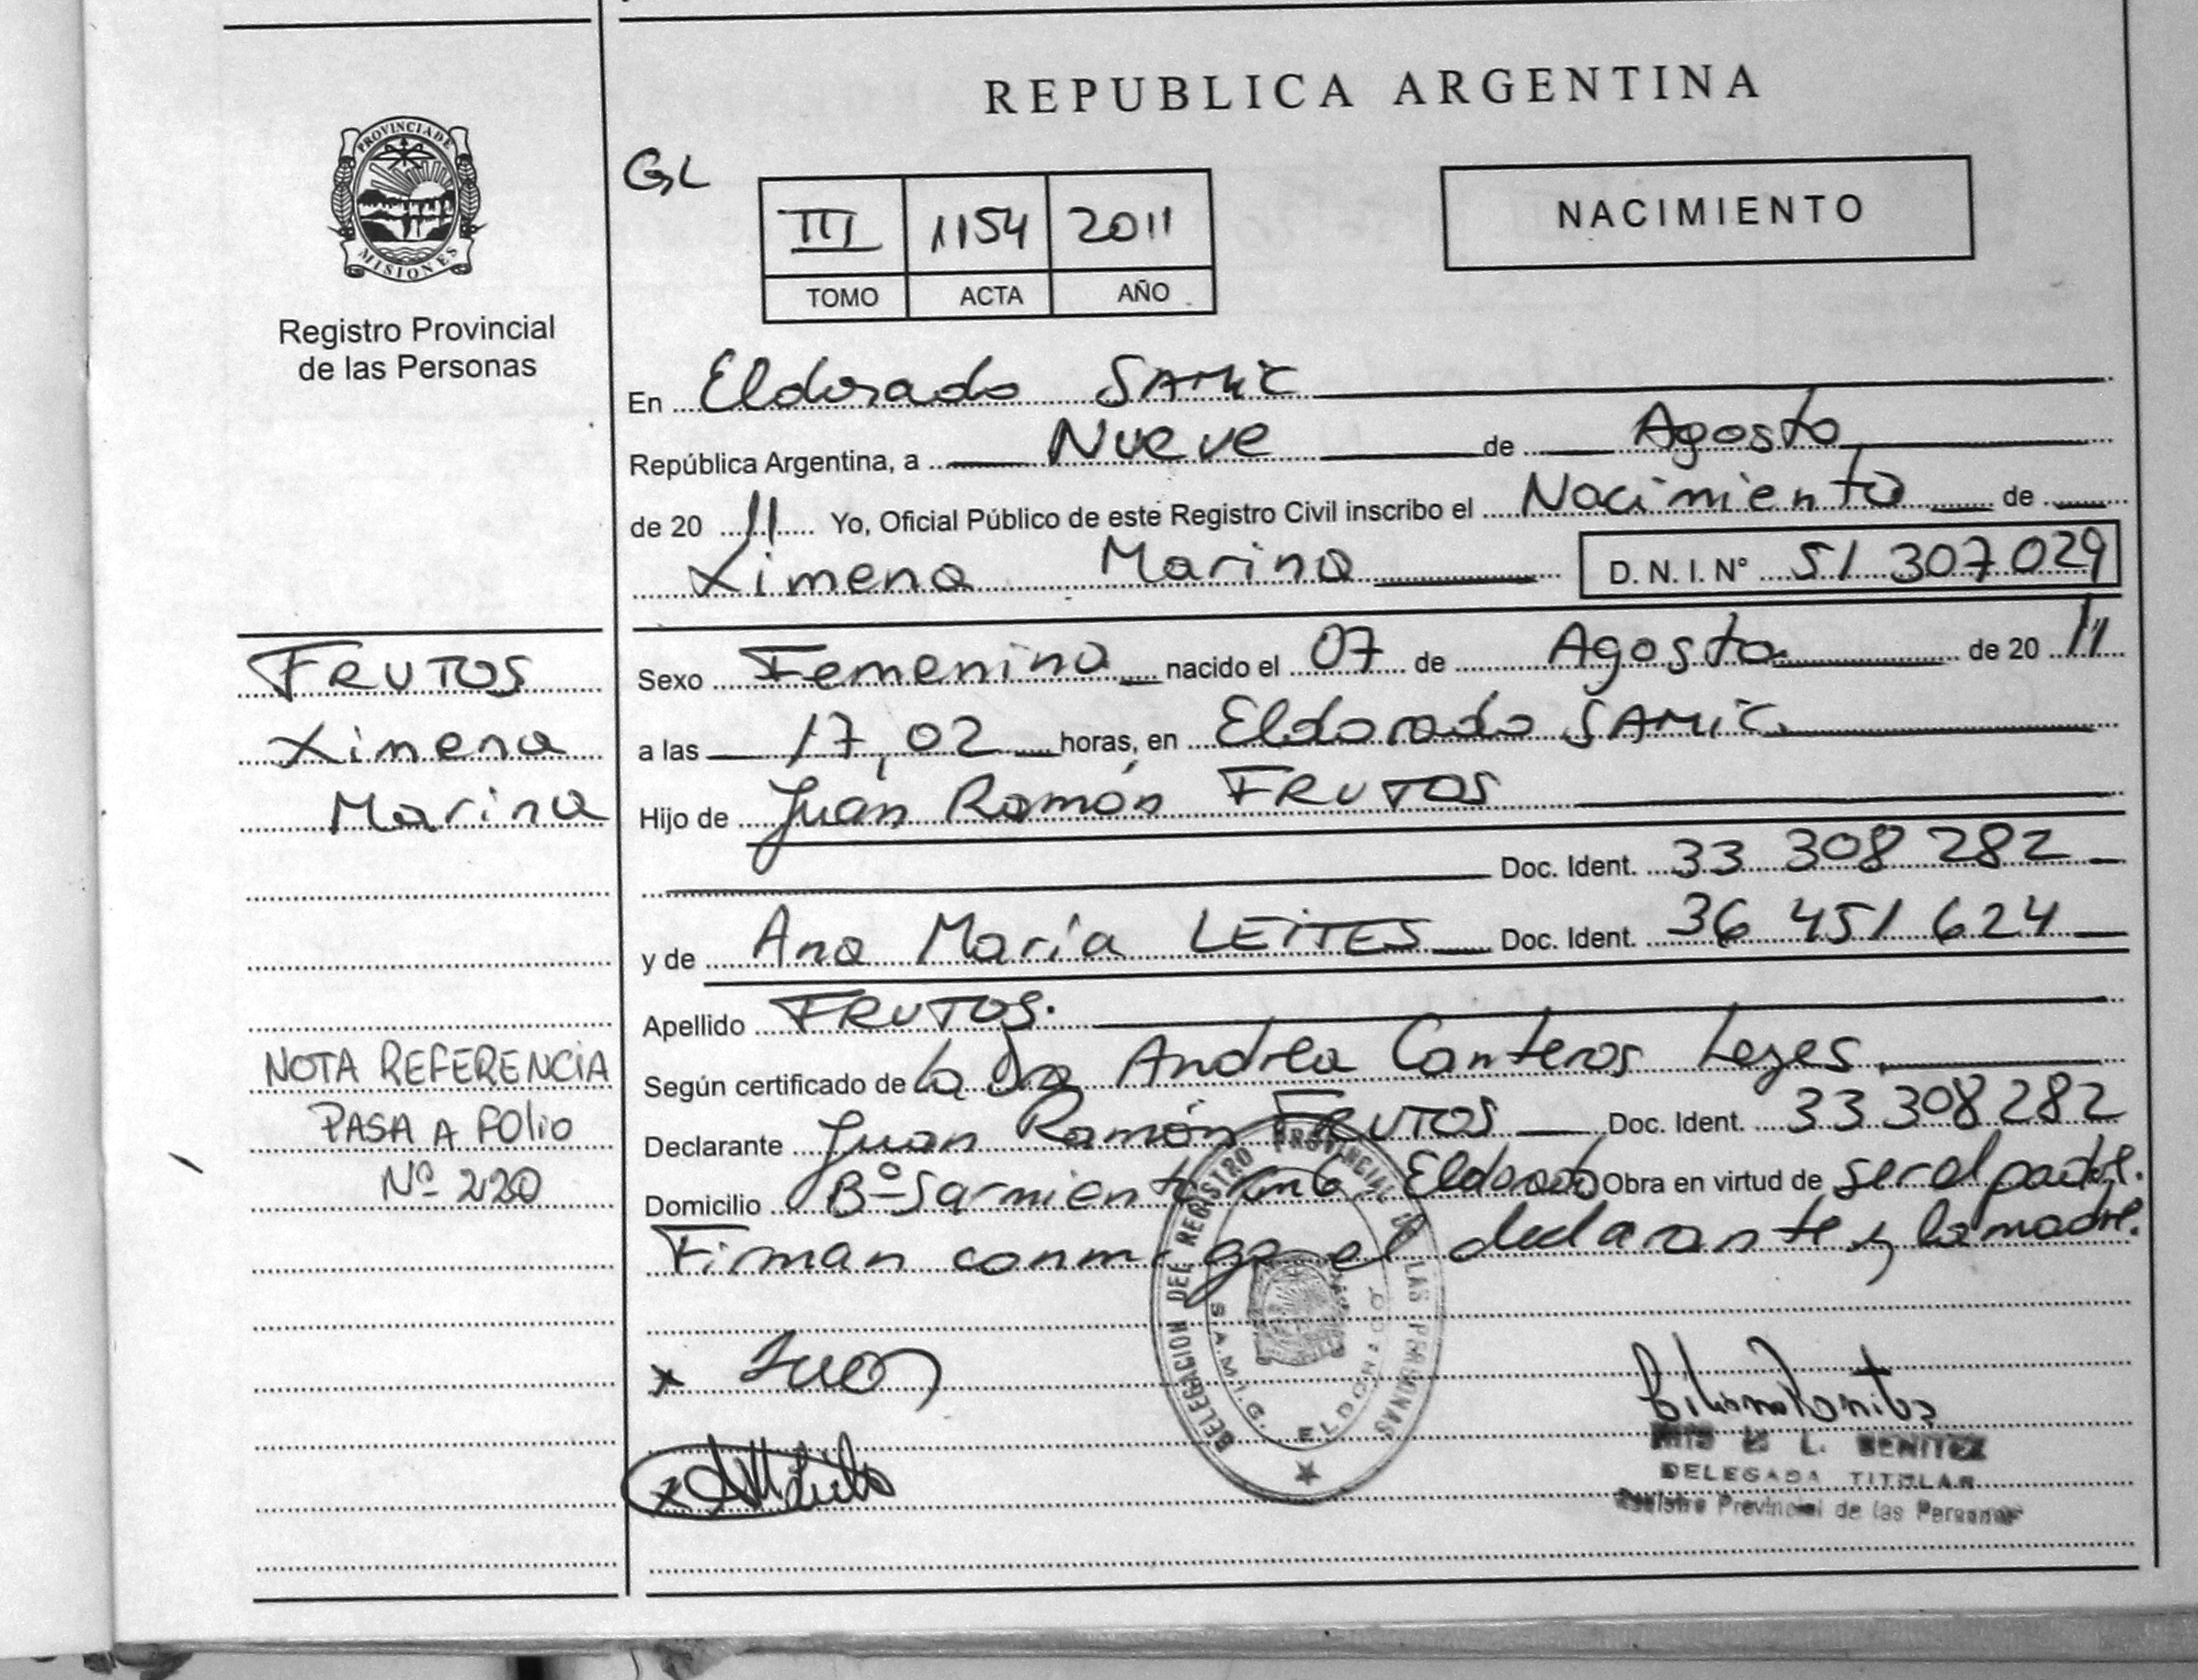 REPUBLICA ARGENTINA
PROVINCIA DE
MISIONES
Registro Provincial
de las Personas
GL
III 1154 2011
TOMO ACTA AÑO
NACIMIENTO
En Eldorado SAMIC
República Argentina, a Nueve de Agosto
de 20 11 Yo, Oficial Público de este Registro Civil inscribo el Nacimiento de
Ximena Marina D. N. I. N° 51 307 029
FRUTOS
Ximena
Marina
NOTA REFERENCIA
PASA A FOLIO
Nº 220
Sexo Femenino nacido el 07 de Agosto de 20 11
a las 17,02 horas, en Eldorado SAMIC.
Hijo de Juán Ramón FRUTOS
Doc. Ident. 33 308 282
y de Ana María LEITES Doc. Ident. 36 451 624
Apellido FRUTOS.
Según certificado de la Dra Andrea Canteros
Declarante Juan Ramón FRUTOS Doc. Ident. 33 308 282
Domicilio Bº Sarmiento Eldorado Obra en virtud de ser el padre.
Firman conmigo el declarante y la madre.
DELEGACION DEL REGISTRO PROVINCIAL DE LAS PERSONAS
S.A.M.I.C. ELDORADO
x Juan
L. BENITEZ
DELEGADA TITULAR
Registro Provincial de las Personas